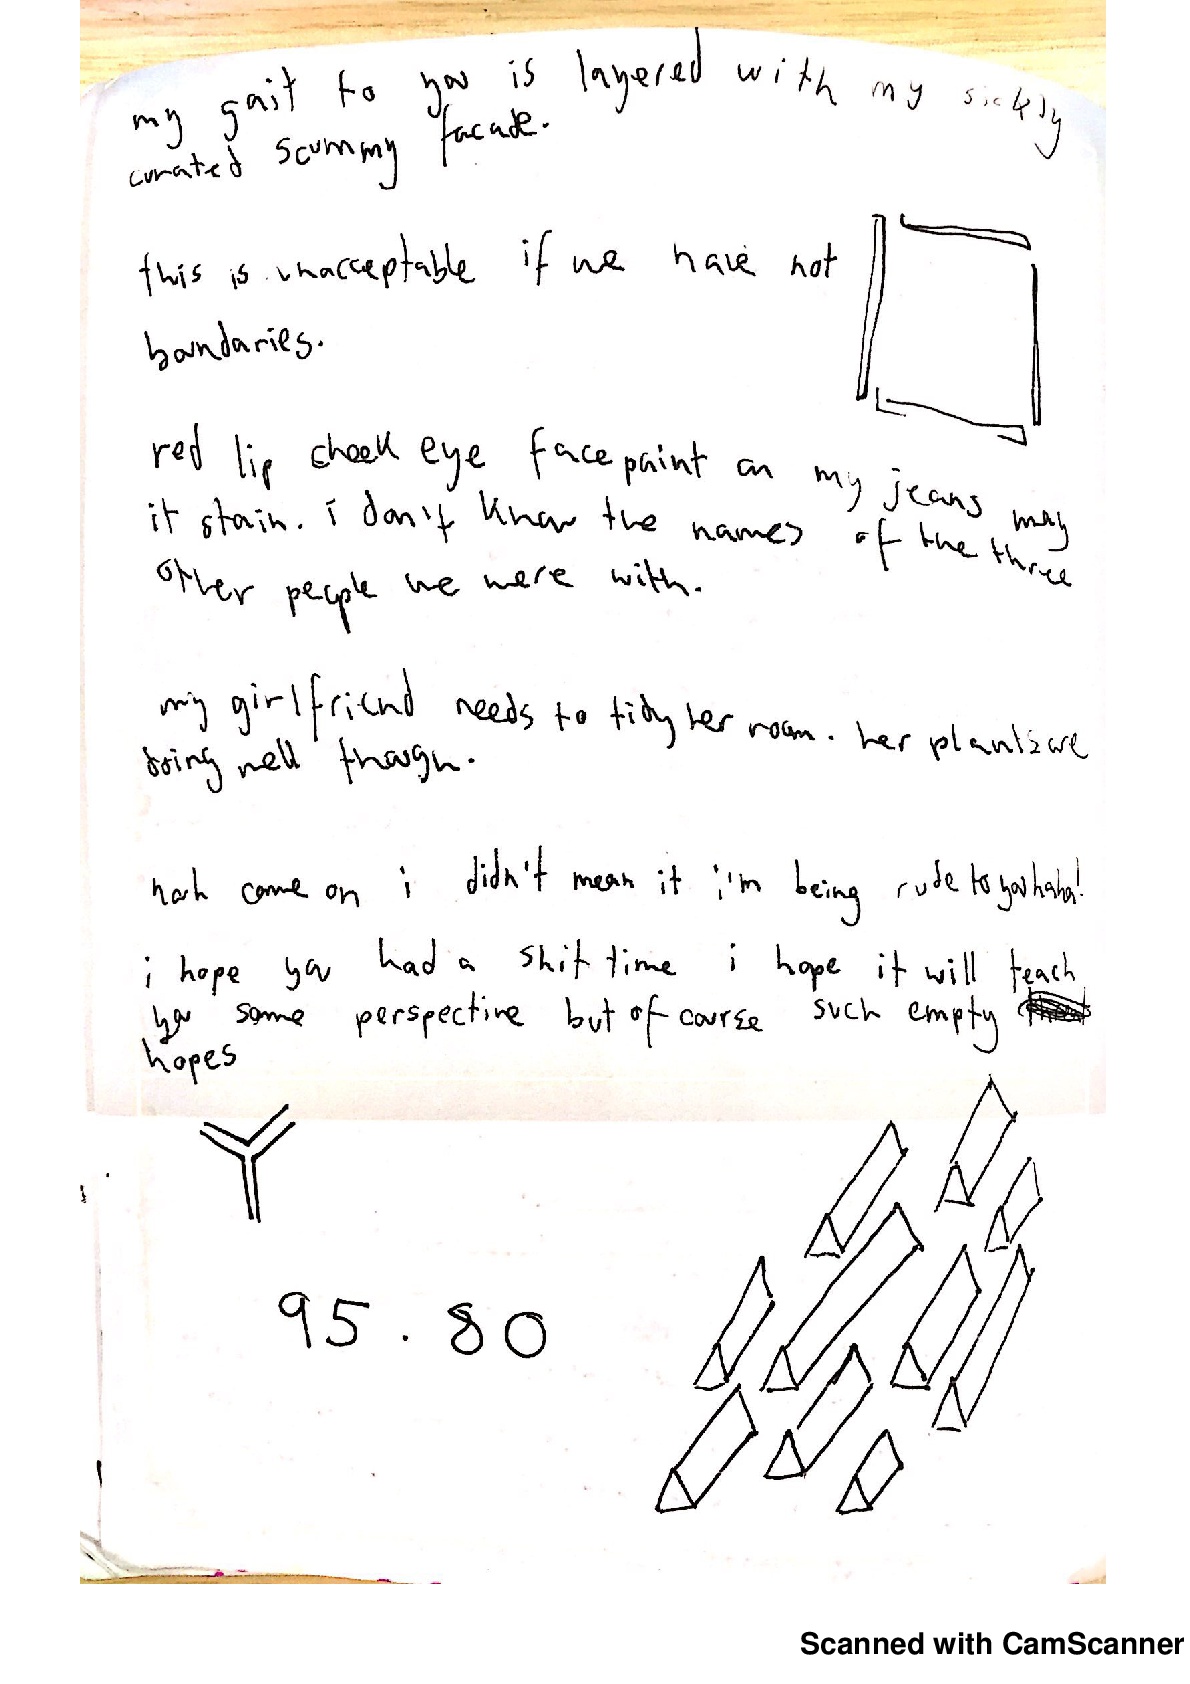 my gait to you is layered with my sickly
curated scummy facade.
this is unacceptable if we have not
boundaries.
red lip cheek eye face paint on my jeans may
it stain. i don't know the names of the three
other people we were with.
my girlfriend needs to tidy her room. her plants are
doing well though.
nah come on i didn't mean it i'm being rude to you haha!
i hope you had a shit time i hope it will teach
you some perspective but of course such empty
hopes
Y
95.80
Scanned with CamScanner